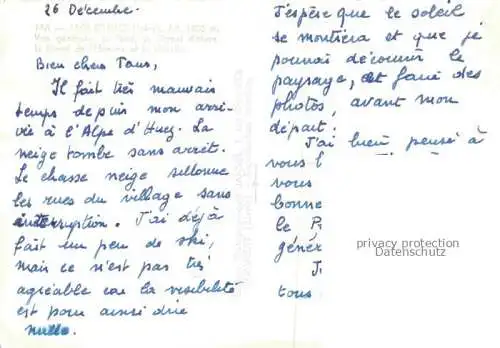 26 Décembre.
Bien chers Tous,
Il fait très mauvais
temps depuis mon arri-
vée à l'Alpe d'Huez. La
neige tombe sans arrêt.
Le chasse neige sillonne
les rues du village sans
interruption. J'ai déjà
fait un peu de ski,
mais ce n'est pas très
agréable car la visibilité
est pour ainsi dire
nulle.
J'espère que le soleil
se montrera et que je
pourrai découvrir le
paysage, et faire des
photos, avant mon
départ.
J'ai bien pensé à
vous
vous
bonne
le
génér
J
tous
privacy protection
Datenschutz